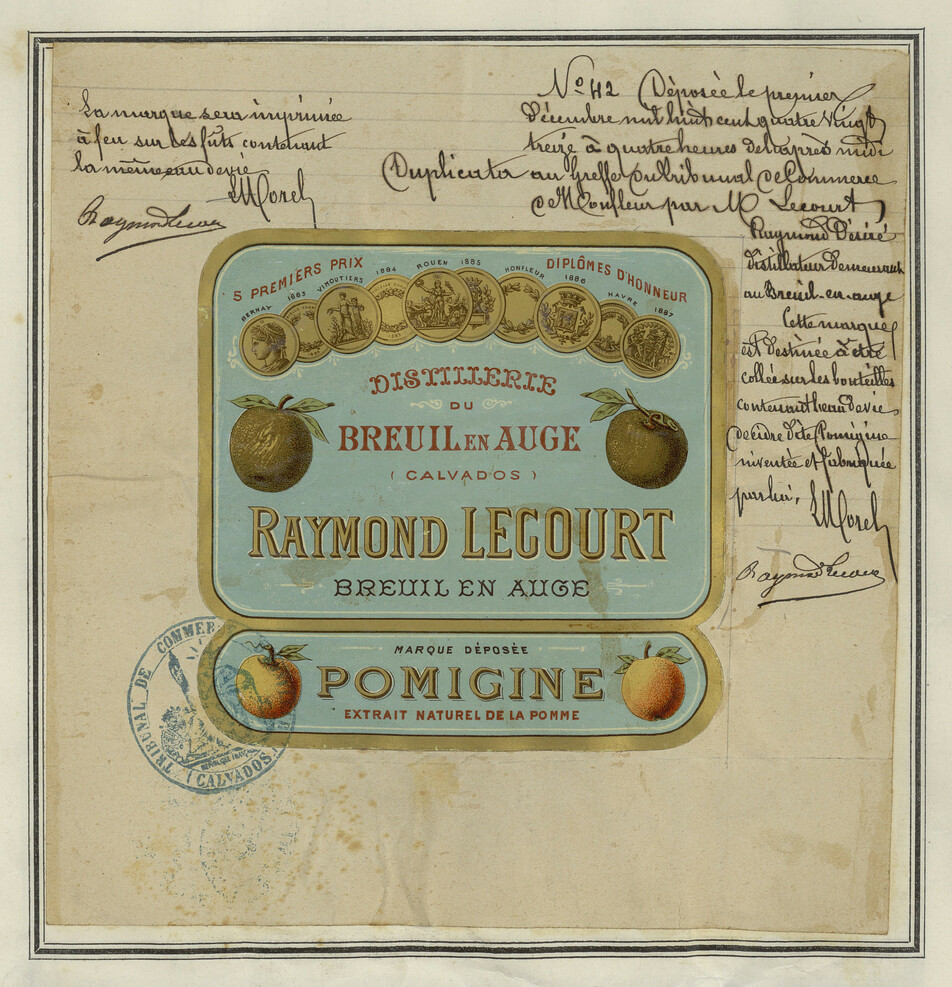 La marque sera imprimée
à feu sur les fûts contenant
la même eau de vie
LMorel
Raymond Lecour
No 42 Déposée le premier
Décembre mil huit cent quatre vingt
treize à quatre heures de l'après midi
Duplicata au Greffe du tribunal de Commerce
de Honfleur par M Lecourt
Raymond Désiré
distillateur demeurant
au Breuil-en-auge
Cette marque
est destinée à être
collée sur les bouteilles
contenant l'eau de vie
de cidre dite Pomigine
inventée et fabriquée
par lui,
LMorel
Raymond Lecour
5 PREMIERS PRIX
DIPLÔMES D'HONNEUR
BERNAY 1883 VIMOUTIERS 1884 ROUEN 1885 HONFLEUR 1886 HAVRE 1887
DISTILLERIE
DU
BREUIL EN AUGE
(CALVADOS)
RAYMOND LECOURT
BREUIL EN AUGE
MARQUE DÉPOSÉE
POMIGINE
EXTRAIT NATUREL DE LA POMME
TRIBUNAL DE COMMER
(CALVADOS)